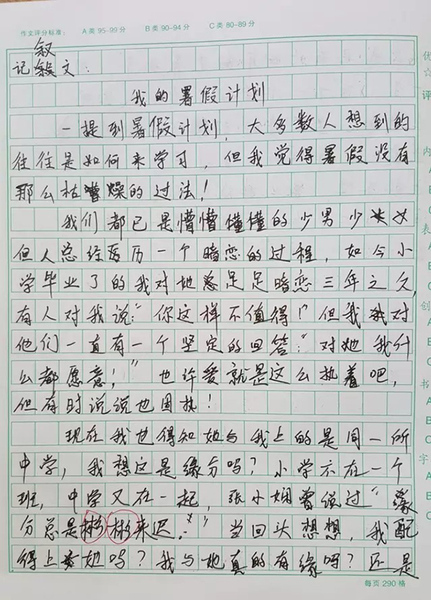 作文评分标准： A类 95-99分 B类 90-94分 C类 80-89分
叙
记叙文：
我的暑假计划
一提到暑假计划，大多数人想到的
往往是如何来学习，但我觉得暑假没有
那么枯燥的过法！
我们都已是懵懵懂懂的少男少女
但人总经历一个暗恋的过程，如今小
学毕业了的我对她总足足暗恋三年之久，
有人对我说："你这样不值得！"但我对
他们一直有一个坚定的回答："对她我什
么都愿意！"也许爱就是这么执着吧，
但有时说说也困执！
现在我也得知她与我上的是同一所
中学，我想这是缘分吗？小学不在一个
班，中学又在一起，张小娴曾经过"缘
分总是彬彬来迟。"当回头想想，我配
得上她吗？我与她真的有缘吗？还是
每页 290 格
优
☆
评
内
A
表
A
创
书
字
A